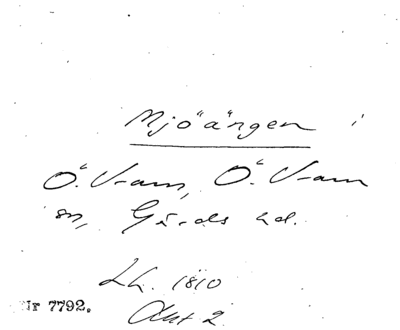 Mjöängen
Ö. Vram, Ö. Vram
sn, Gärds hd.
Lh. 1810
Akt 2
Nr 7792.